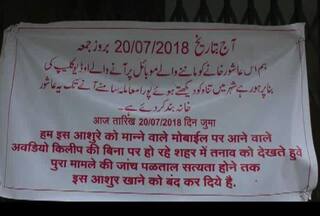 آج بتاریخ 20/07/2018 بروز جمعہ
ہم اس عاشور خانے کو ماننے والے موبائل پر آنے والے اوڈیو کلیپ کی
بنا پر ہو رہے شہر میں تناؤ کو دیکھتے ہوئے پورا معاملہ سامنے آنے تک یہ عاشور
خانہ بند کر دئے ہے۔
आज तारिख 20/07/2018 दिन जुमा
हम इस आशुरे को मान्ने वाले मोबाईल पर आने वाले
अवडियो किलीप की बिना पर हो रहे शहर में तनाव को देखते हुवे
पुरा मामले की जांच पळताल सत्यता होने तक
इस आशुर खाने को बंद कर दिये है.